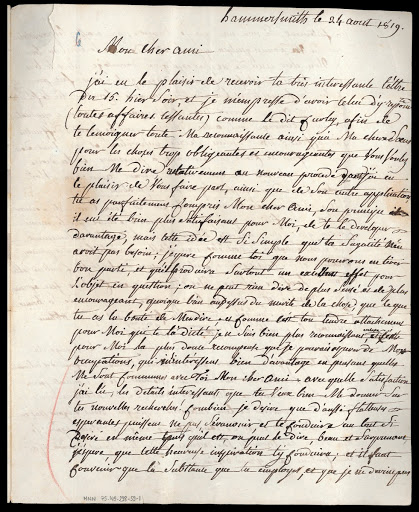 hammersmith le 24 aout 1819.
6
Mon cher ami
j'ai eu le plaisir de recevoir ta très interessante lettre
du 15. hier soir, et je m'empresse d'avoir celui d'y
(toutes affaires cessantes) comme le dit afin de
te temoigner toute Ma reconnaissante ainsi qu'a Ma
pour les choses trop obligeantes et encourageantes que Vous
bien Me dire relativement au nouveau procedé dont j'ai eu
le plaisir de Vous faire part, ainsi que de Son autre application
tu as parfaitement Compris Mon cher ami, Son principe
il eut été bien plus Satisfaisant pour Moi, de te le developer
davantage, mais cette idée est Si Simple que ta Sagacité n'en
avoit pas besoin; j'espere comme toi que nous pourrons en tirer
bon parti, et qu'il produira Surtout un excellent effet pour
l'objet en question; on ne peut rien dire de plus et de plus
encourageant, quoique bien audessus du merite de la chose, que ce que
tu as la bonté de M'en dire et comme c'est ton tendre attachement
pour Moi qui te l'a dicté, j'en Suis bien plus reconnaissant, et c'est
pour Moi la plus douce recompense que je pouvais esperer de Mes
occupations, qui m'interessent bien d'avantage en pensant qu'elles
Me Sont Communes avec Toi Mon cher ami. avec quelle Satisfaction
j'ai lu les details interessant que tu Veux bien Me donner Sur
tes nouvelles recherches. Combien je desire que d'aussi flatteuses
esperances puissent ne pas S'evanouir et te conduire au but Si
desiré en même tems qu'il est, on peut le dire, beau et Surprenant
j'espere que cette heureuse inspiration t'y conduira; et il faut
convenir que la Substance que tu employes, et que je ne devine pas
MNHN